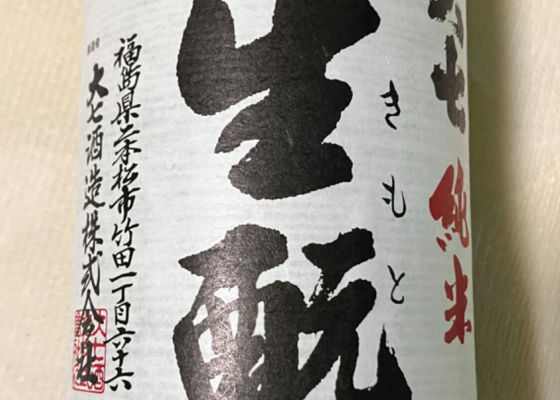 大七 純米
生酛
きもと
福島県二本松市竹田一丁目六十六
大七酒造株式会社